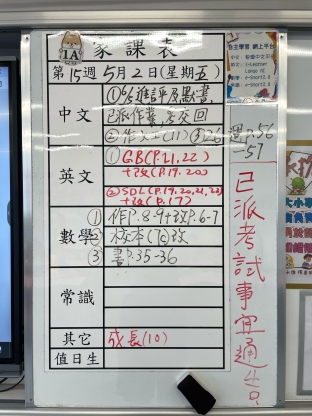 1A
家課表
第15週 5月2日(星期五)
中文
①6/5進評及默書,
已派作業,簽交回
②作文工(11) ③26週p.56
-57
英文
①GB(P.21,22)
+改(P.19,20)
②SDL(P.19,20,21,22)
+改(P.17)
數學
①作P.8-9+改P.6-7
②校本(7C)改
③書P.35-36
常識
其它
成長(10)
值日生
自主學習 網上平台
已派考試事宜通告